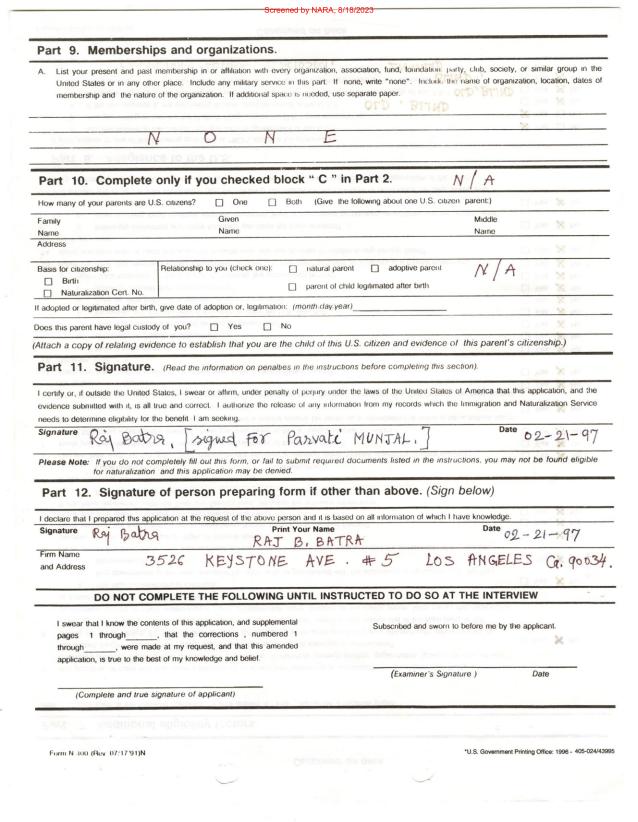 Screened by NARA, 8/18/2023
Part 9. Memberships and organizations.
A. List your present and past membership in or affiliation with every organization, association, fund, foundation, party, club, society, or similar group in the
United States or in any other place. Include any military service in this part. If none, write "none". Include the name of organization, location, dates of
membership and the nature of the organization. If additional space is needed, use separate paper.
N O N E
Part 10. Complete only if you checked block " C " in Part 2. N / A
How many of your parents are U.S. citizens? One Both (Give the following about one U.S. citizen parent:)
Family Given Middle
Name Name Name
Address
Basis for citizenship: Relationship to you (check one): natural parent adoptive parent N / A
Birth
Naturalization Cert. No. parent of child legitimated after birth
If adopted or legitimated after birth, give date of adoption or, legitimation: (month day year)
Does this parent have legal custody of you? Yes No
(Attach a copy of relating evidence to establish that you are the child of this U.S. citizen and evidence of this parent's citizenship.)
Part 11. Signature. (Read the information on penalties in the instructions before completing this section).
I certify or, if outside the United States, I swear or affirm, under penalty of perjury under the laws of the United States of America that this application, and the
evidence submitted with it, is all true and correct. I authorize the release of any information from my records which the Immigration and Naturalization Service
needs to determine eligibility for the benefit I am seeking.
Signature Raj Batra, [signed FOR Parvati MUNJAL.] Date 02-21-97
Please Note: If you do not completely fill out this form, or fail to submit required documents listed in the instructions, you may not be found eligible
for naturalization and this application may be denied.
Part 12. Signature of person preparing form if other than above. (Sign below)
I declare that I prepared this application at the request of the above person and it is based on all information of which I have knowledge.
Signature Raj Batra Print Your Name Date 02-21-97
RAJ B. BATRA
Firm Name
and Address 3526 KEYSTONE AVE. #5 LOS ANGELES Ca. 90034.
DO NOT COMPLETE THE FOLLOWING UNTIL INSTRUCTED TO DO SO AT THE INTERVIEW
I swear that I know the contents of this application, and supplemental
pages 1 through_______, that the corrections , numbered 1
through_______, were made at my request, and that this amended
application, is true to the best of my knowledge and belief.
(Complete and true signature of applicant)
Subscribed and sworn to before me by the applicant.
(Examiner's Signature ) Date
Form N-400 (Rev. 07/17/91)N *U.S. Government Printing Office: 1996 - 405-024/43995